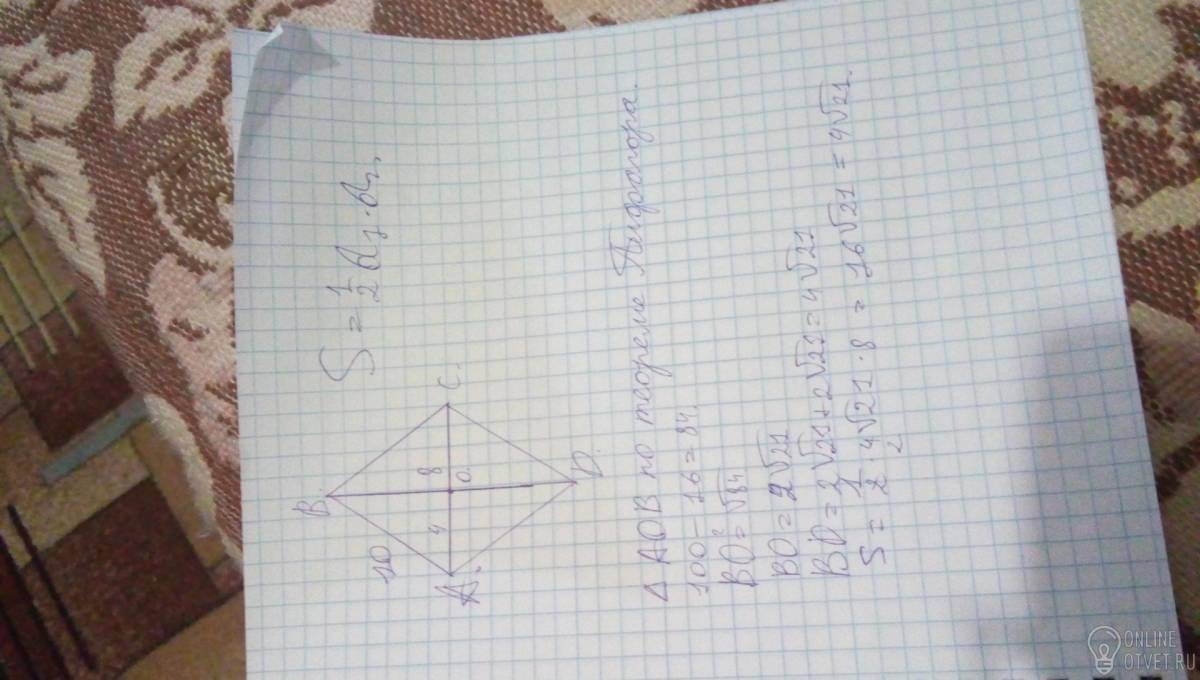 S = 1/2 d₁·d₂.
B.
10
4
8
A.
O.
C.
D.
Δ AOB по теореме Пифагора.
100 - 16 = 84.
BO² = √84
BO = 2√21
BD = 2√21 + 2√21 = 4√21
S = 1/2 4√21 · 8 = 16√21 = 4√21.
2
ONLINE
OTVET.RU